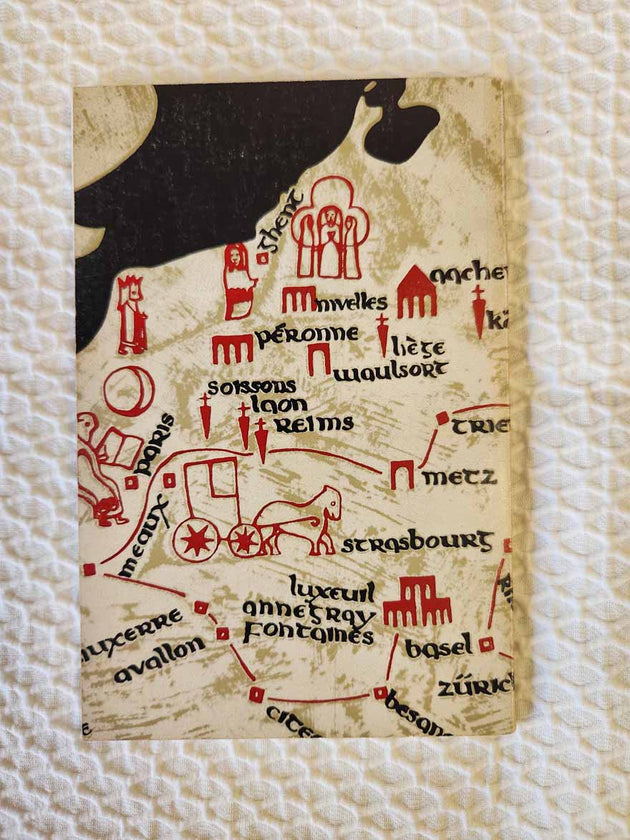 ghent
aache
nivelles
kä
péronne
liège
waulsort
soissons
laon
reims
paris
trie
metz
meaux
strasbourg
luxeuil
annegray
fontaines
uxerre
avallon
basel
züric
besan
cite
e